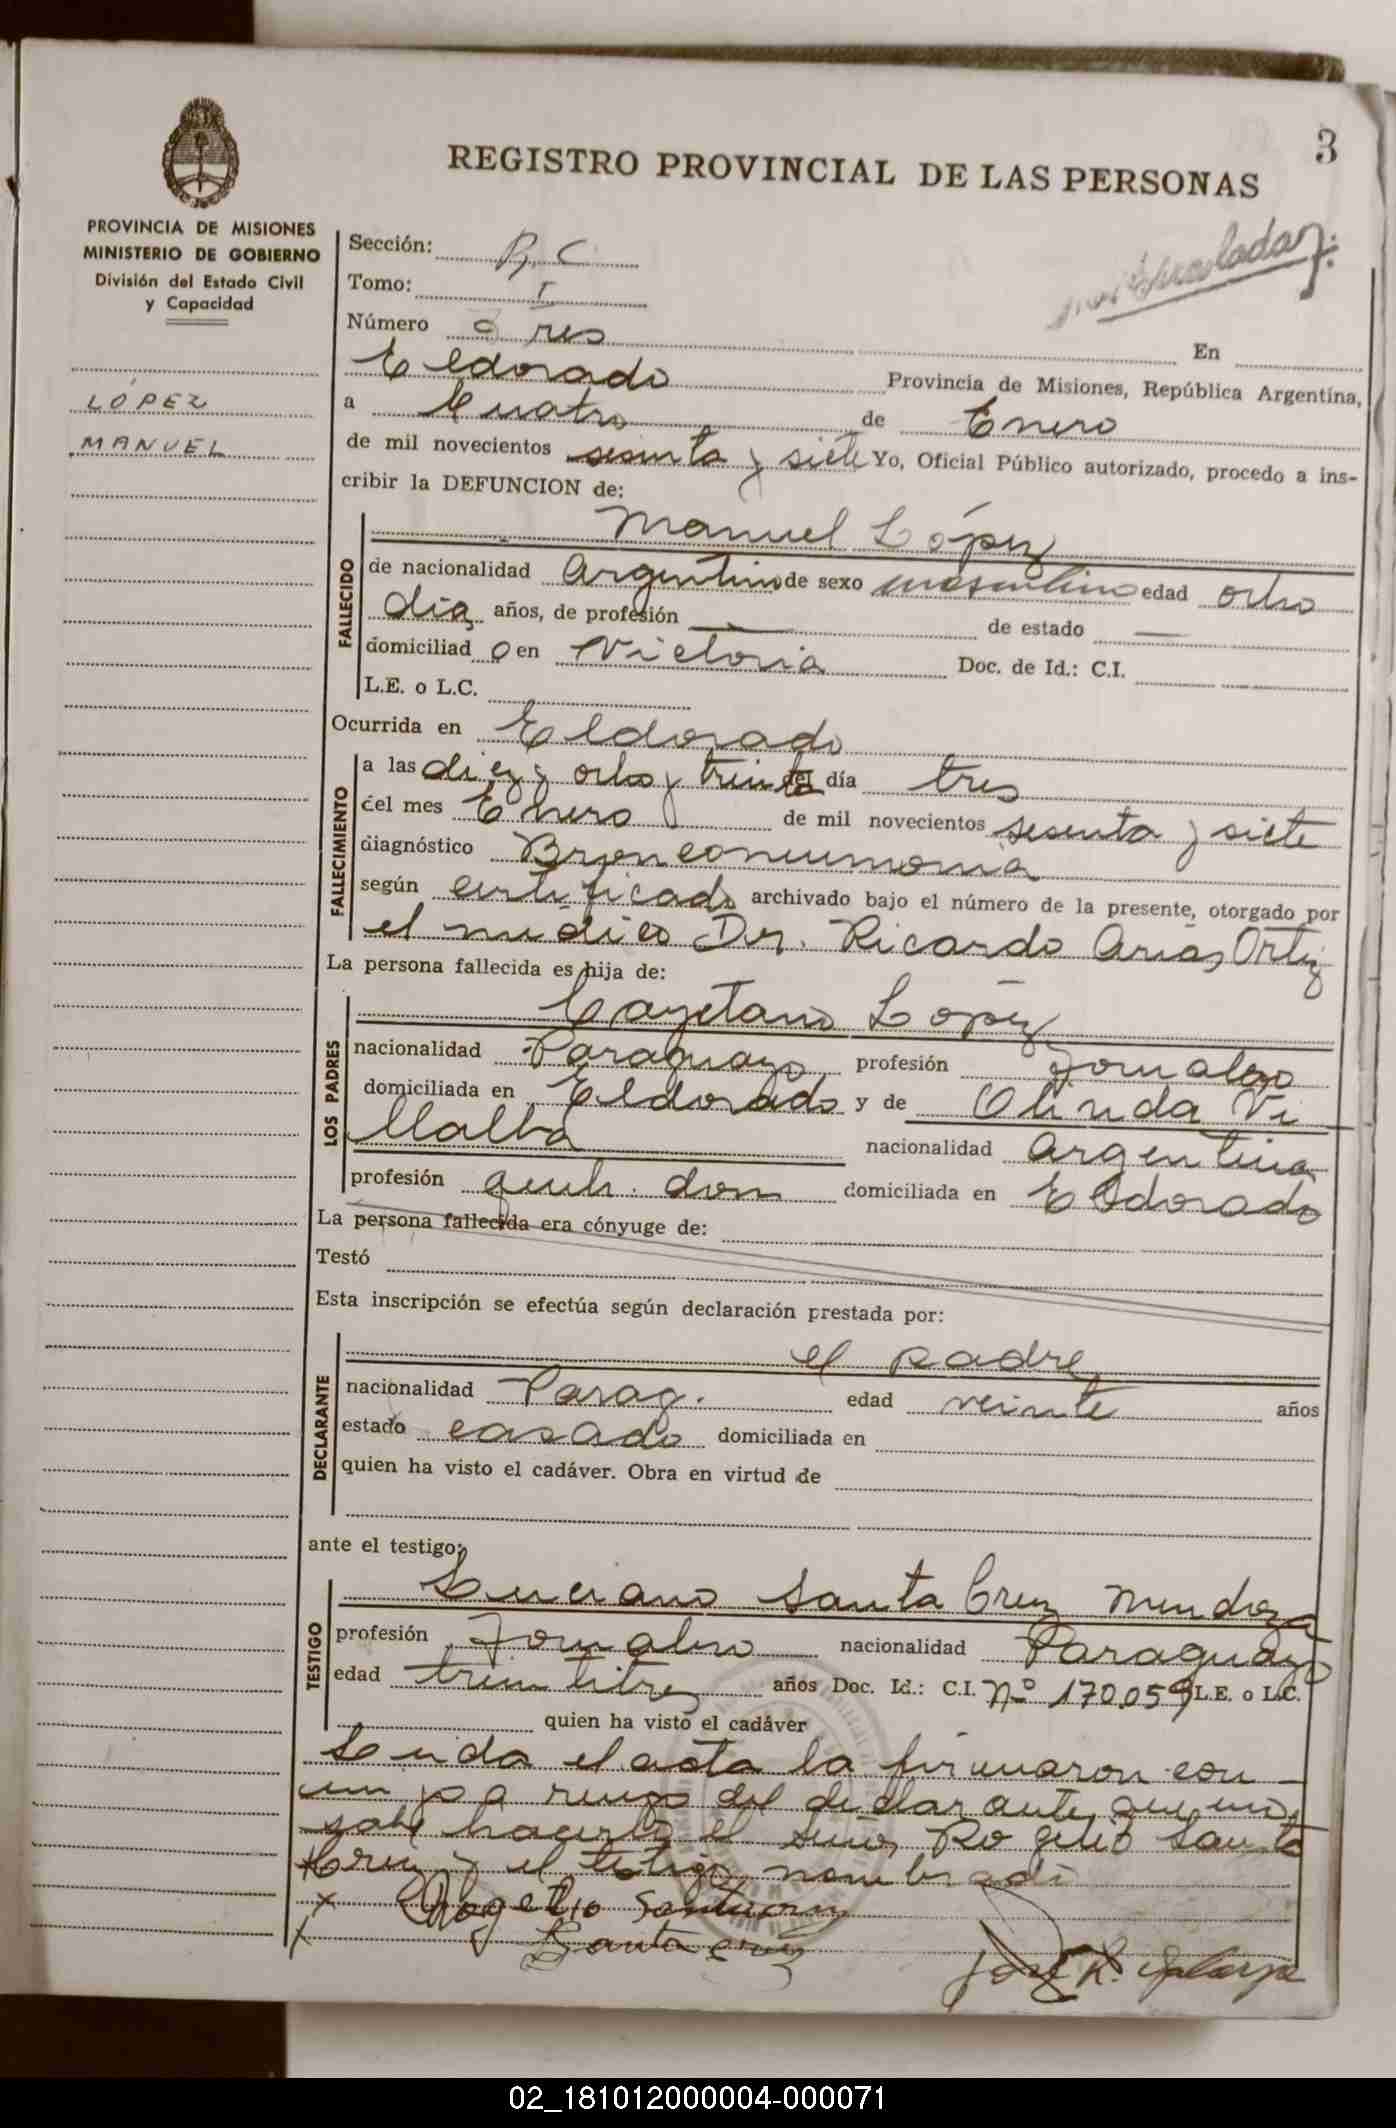 3
REGISTRO PROVINCIAL DE LAS PERSONAS
PROVINCIA DE MISIONES
MINISTERIO DE GOBIERNO
División del Estado Civil
y Capacidad
LÓPEZ
MANUEL
Sección: R, C
Tomo: I
Número tres En
Eldorado Provincia de Misiones, República Argentina,
a Cuatro de Enero
de mil novecientos sesenta y siete Yo, Oficial Público autorizado, procedo a ins-
cribir la DEFUNCION de:
Manuel López
FALLECIDO
de nacionalidad Argentino de sexo masculino edad ocho
dias años, de profesión — de estado —
domiciliad o en Victoria Doc. de Id.: C.I.
L.E. o L.C.
Ocurrida en Eldorado
FALLECIMIENTO
a las diez y ocho y treinta del día tres
del mes Enero de mil novecientos sesenta y siete
diagnóstico Bronconeumonia
según certificado archivado bajo el número de la presente, otorgado por
el médico Dr. Ricardo Arias Ortiz
La persona fallecida es hija de:
LOS PADRES
Cayetano López
nacionalidad Paraguayo profesión Jornalero
domiciliada en Eldorado y de Olinda Vi
llalba nacionalidad argentina
profesión queh. dom domiciliada en Eldorado
La persona fallecida era cónyuge de:
Testó
Esta inscripción se efectúa según declaración prestada por:
DECLARANTE
el padre
nacionalidad Parag. edad veinte años
estado casado domiciliada en
quien ha visto el cadáver. Obra en virtud de
ante el testigo:
TESTIGO
Luciano Santa Cruz Mendoza
profesión Jornalero nacionalidad Paraguayo
edad treintitres años Doc. Id.: C.I. Nº 170.059 L.E. o L.C.
quien ha visto el cadáver
Leida el acta la firmaron con-
migo a ruego del declarante que no
sabe hacerlo el señor Rogelio Santa
Cruz y el testigo nombrado
x Rogelio Santacruz
x Santa cruz
José R.
02_181012000004-000071